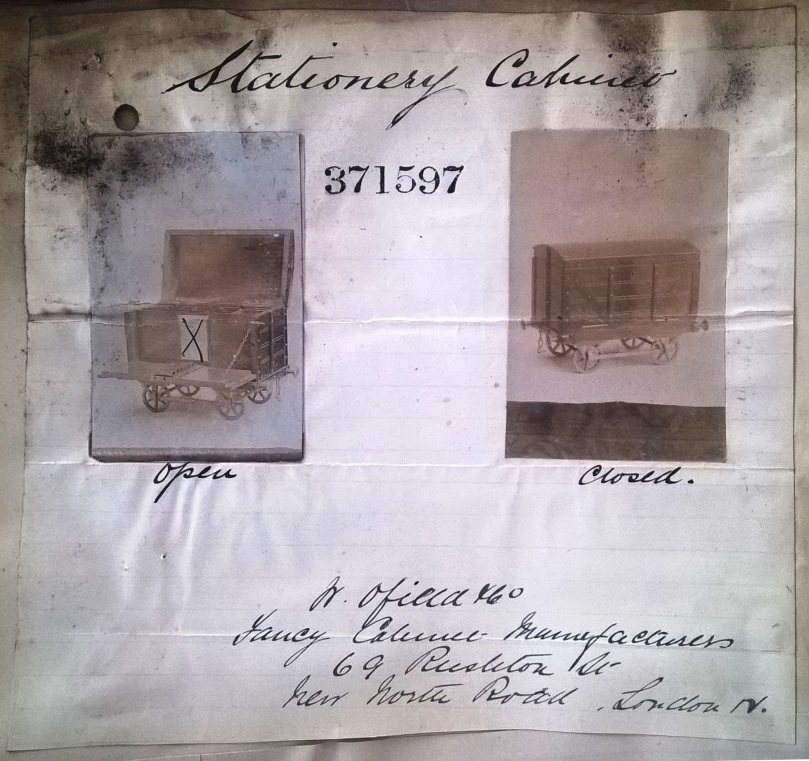 Stationery Cabinet
371597
X
Open
Closed.
W. Ofield & Co
Fancy Cabinet Manufacturers
69 Rushton St
New North Road, London N.